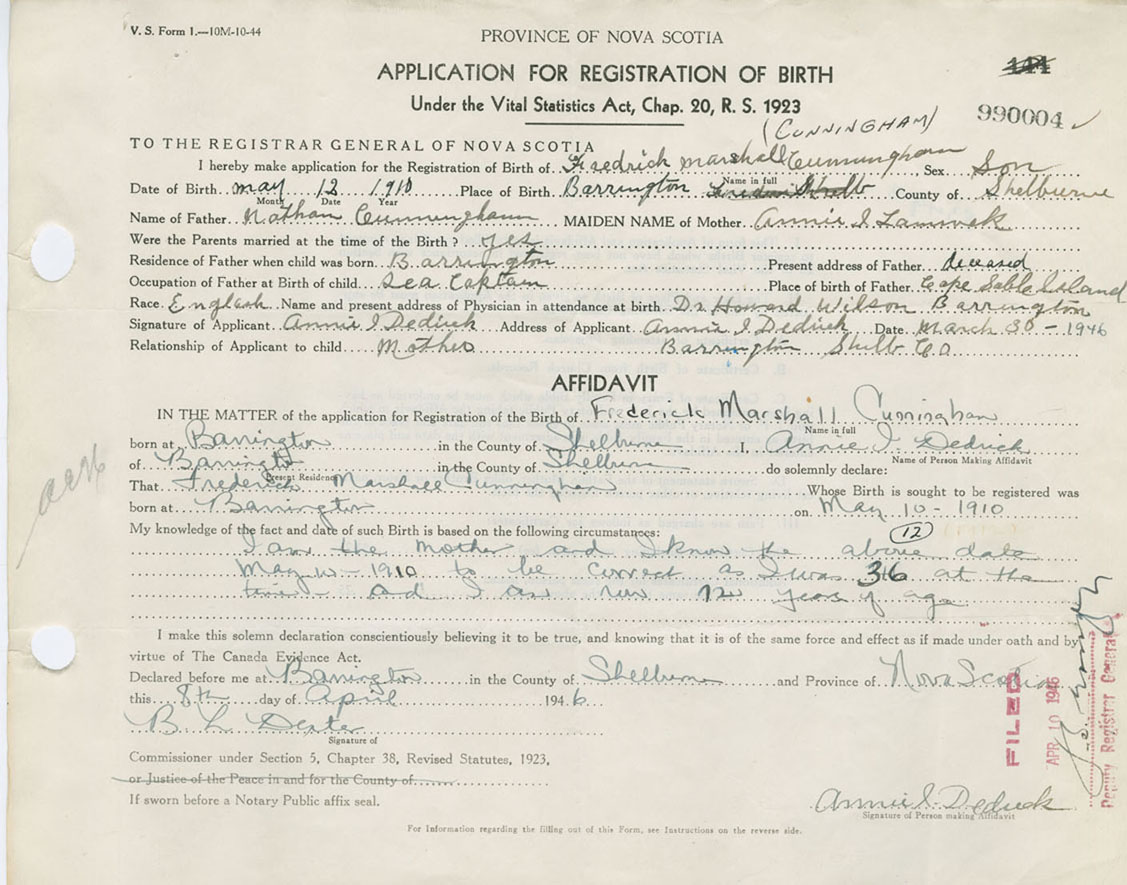 V. S. Form 1.—10M-10-44
PROVINCE OF NOVA SCOTIA
APPLICATION FOR REGISTRATION OF BIRTH
144
Under the Vital Statistics Act, Chap. 20, R. S. 1923
990004 ✓
(CUNNINGHAM)
TO THE REGISTRAR GENERAL OF NOVA SCOTIA
I hereby make application for the Registration of Birth of Fredrick Marshall Cunningham, Sex Son
Name in full
Date of Birth may 12 1910 Place of Birth Barrington Shelb County of Shelburne
Month Date Year
Name of Father Nathan Cunningham MAIDEN NAME of Mother Annie I
Were the Parents married at the time of the Birth? yes
Residence of Father when child was born Barrington Present address of Father deceased
Occupation of Father at Birth of child Sea Captain Place of birth of Father Cape Sable Island
Race English Name and present address of Physician in attendance at birth Dr Howard Wilson Barrington
Signature of Applicant Annie I Dedrick Address of Applicant Annie I Dedrick Date March 30 - 1946
Relationship of Applicant to child Mother Barrington Shelb Co
AFFIDAVIT
IN THE MATTER of the application for Registration of the Birth of Frederick Marshall Cunningham
Name in full
born at Barrington in the County of Shelburne I, Annie I. Dedrick
Name of Person Making Affidavit
of Barrington in the County of Shelburne do solemnly declare:
Present Residence
That Frederick Marshall Cunningham Whose Birth is sought to be registered was
born at Barrington on May 10 - 1910
(12)
My knowledge of the fact and date of such Birth is based on the following circumstances:
I am the mother and I know the above date
May 10 - 1910 to be correct as I was 36 at the
time - and I am now 72 years of age
I make this solemn declaration conscientiously believing it to be true, and knowing that it is of the same force and effect as if made under oath and by
virtue of The Canada Evidence Act.
Declared before me at Barrington in the County of Shelburne and Province of Nova Scotia
this 8th day of April 1946
B L Dexter
Signature of
Commissioner under Section 5, Chapter 38, Revised Statutes, 1923,
or Justice of the Peace in and for the County of
If sworn before a Notary Public affix seal.
Annie I. Dedrick
Signature of Person making Affidavit
For Information regarding the filling out of this Form, see Instructions on the reverse side.
FILED
APR 10 1946
Deputy Registrar General